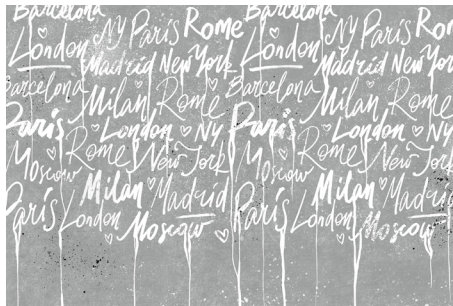 Barcelona NY Paris Rome Barcelona NY Paris Rom
London Madrid New York London Madrid New Yor
Barcelona Milan Rome Barcelona Milan Rome
Paris London NY Paris London NY
Moscow Rome New York Moscow Rome New York
Milan Madrid Milan Madrid
Paris London Moscow Paris London Moscow